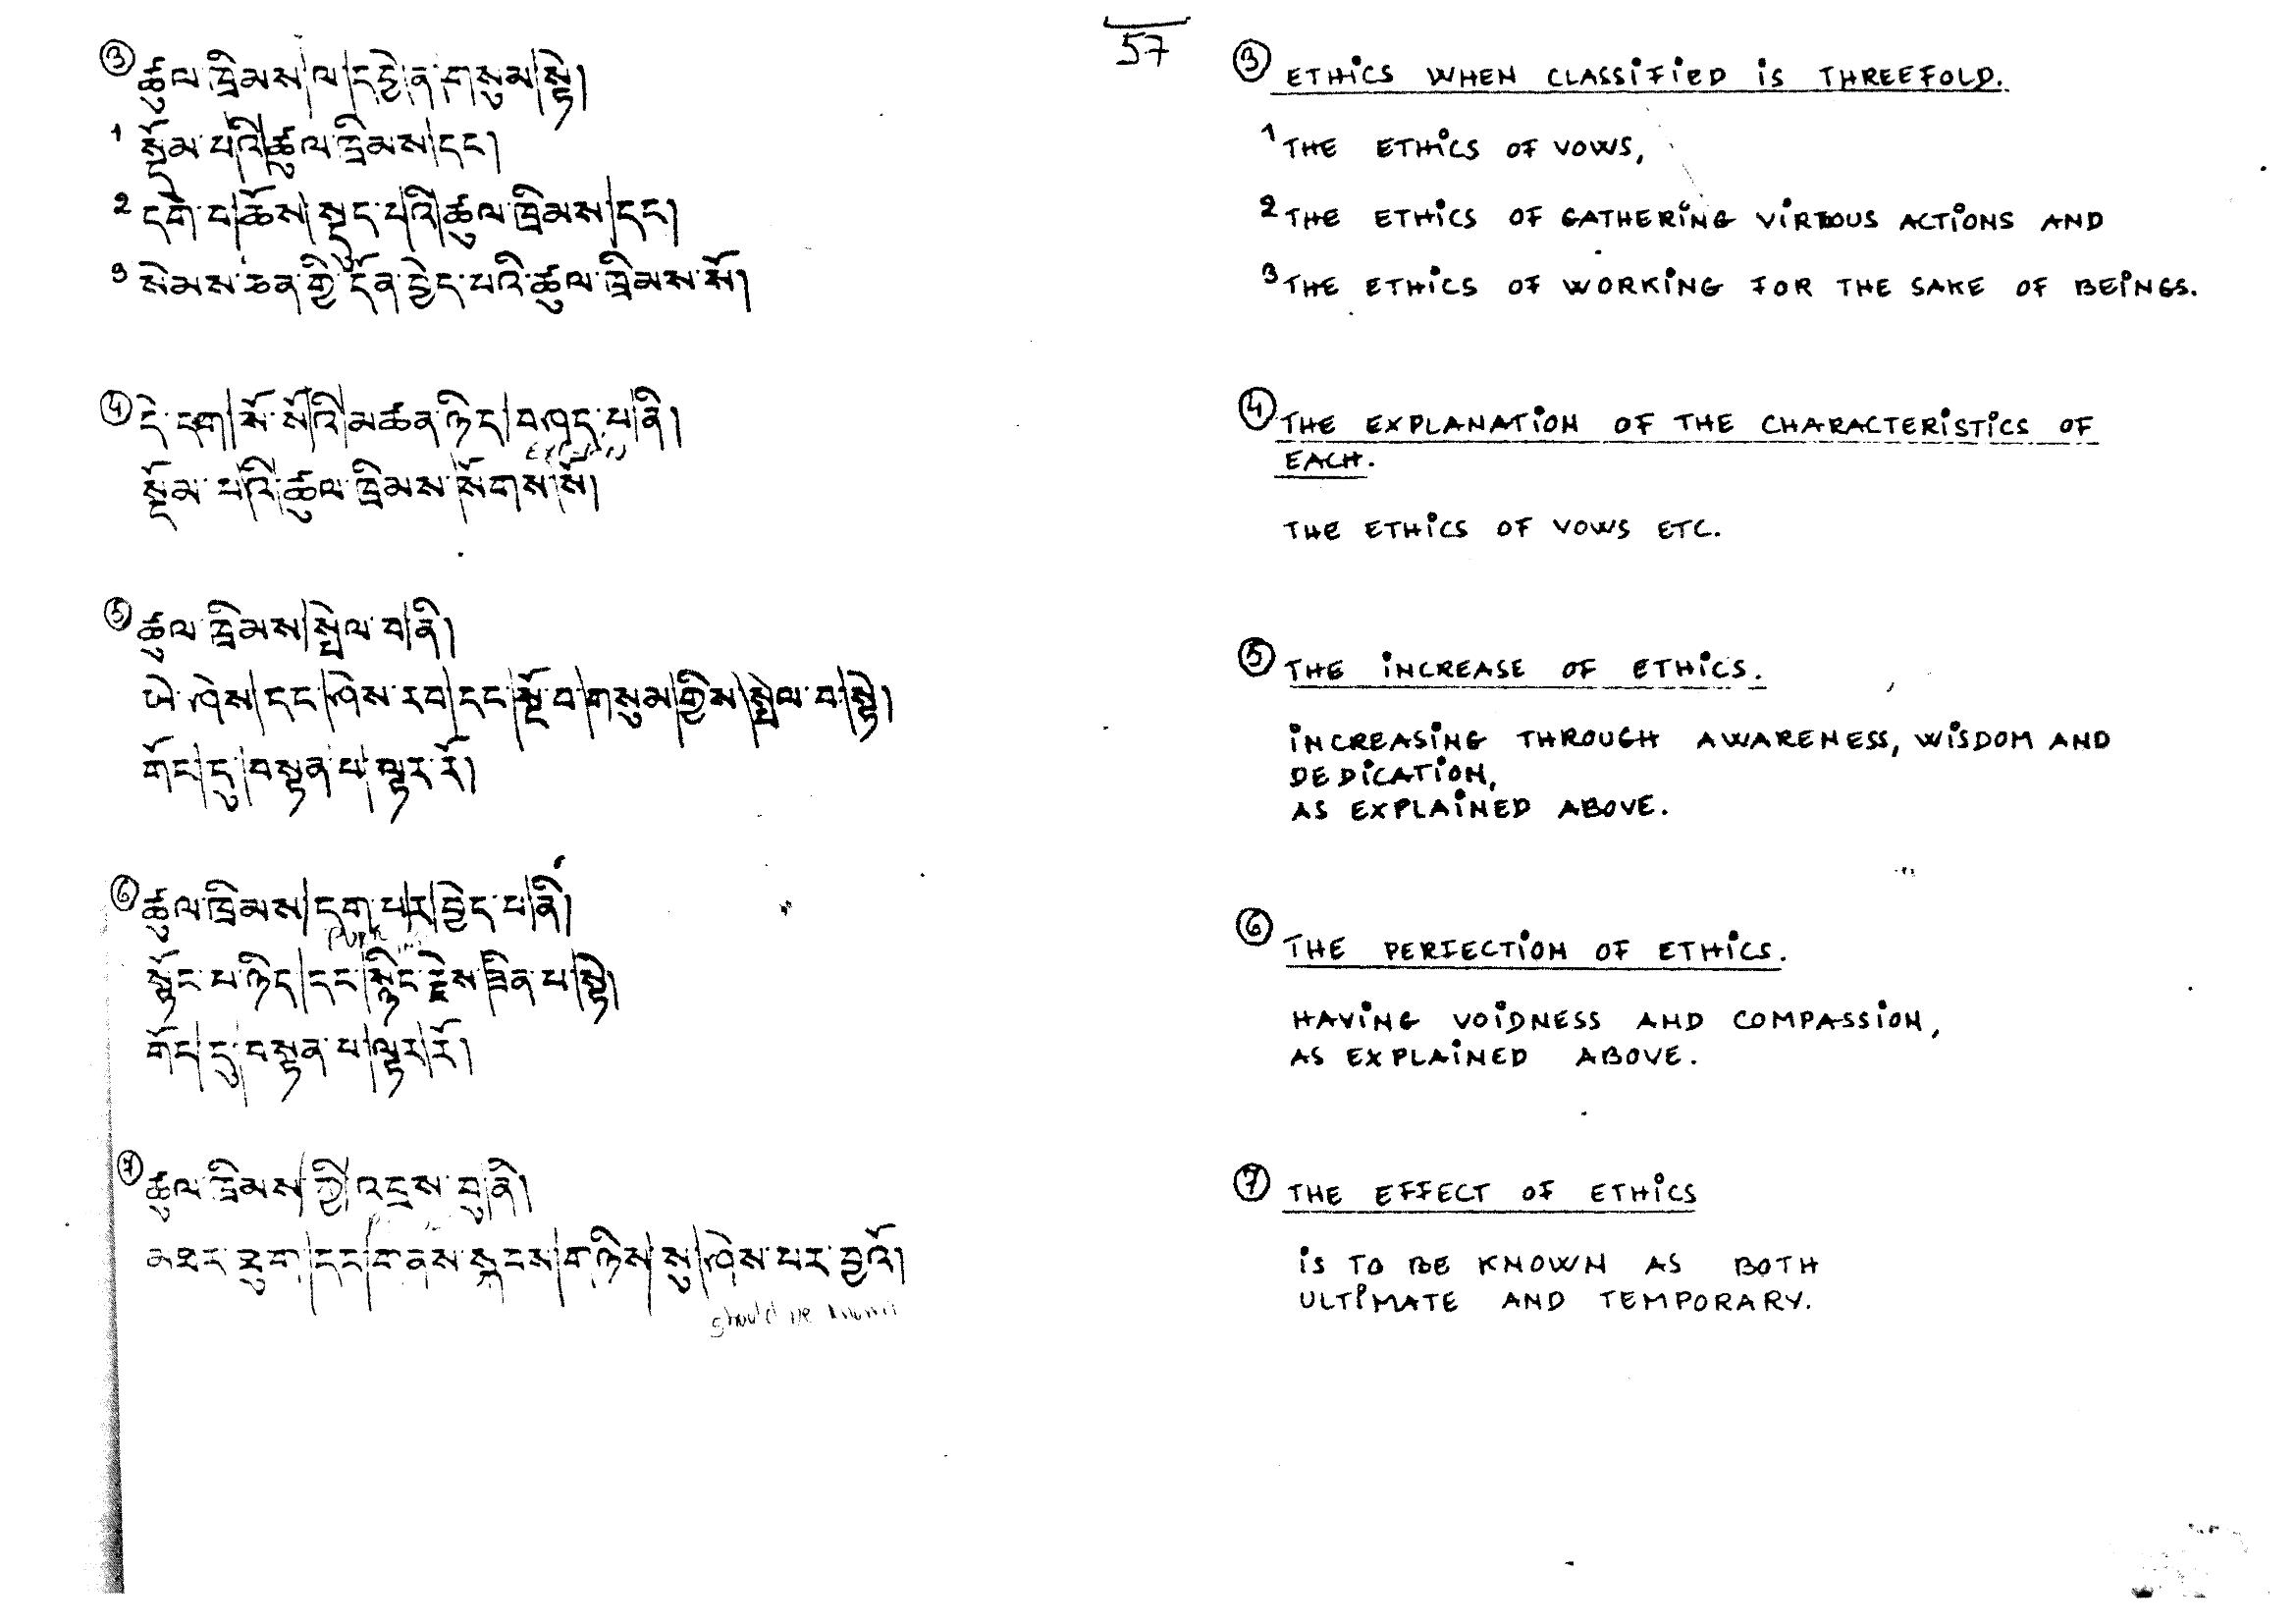 57
③ ཚུལ་ཁྲིམས་ལ་དབྱེ་ན་གསུམ་སྟེ།
1 སྡོམ་པའི་ཚུལ་ཁྲིམས་དང།
2 དགེ་བ་ཆོས་སྡུད་པའི་ཚུལ་ཁྲིམས་དང།
3 སེམས་ཅན་གྱི་དོན་བྱེད་པའི་ཚུལ་ཁྲིམས་སོ།
④ དེ་དག་སོ་སོའི་མཚན་ཉིད་བཤད་པ་ནི།
སྡོམ་པའི་ཚུལ་ཁྲིམས་སོགས་སོ།
⑤ ཚུལ་ཁྲིམས་སྤེལ་བ་ནི།
ཡེ་ཤེས་དང་ཤེས་རབ་དང་སྔོ་བ་གསུམ་གྱིས་སྤེལ་བ་སྟེ།
གོང་དུ་བསྟན་པ་ལྟར་རོ།
⑥ ཚུལ་ཁྲིམས་དག་པར་བྱེད་པ་ནི།
སྟོང་པ་ཉིད་དང་སྙིང་རྗེས་ཟིན་པ་སྟེ།
གོང་དུ་བསྟན་པ་ལྟར་རོ།
⑦ ཚུལ་ཁྲིམས་ཀྱི་འདྲས་བུ་ནི།
མཐར་ཐུག་དང་གནས་སྐབས་གཉིས་སུ་ཤེས་པར་བྱའོ།
should be known
③ ETHICS WHEN CLASSIFIED IS THREEFOLD.
1 THE ETHICS OF VOWS,
2 THE ETHICS OF GATHERING VIRTOUS ACTIONS AND
3 THE ETHICS OF WORKING FOR THE SAKE OF BEINGS.
④ THE EXPLANATION OF THE CHARACTERISTICS OF
EACH.
THE ETHICS OF VOWS ETC.
⑤ THE INCREASE OF ETHICS.
INCREASING THROUGH AWARENESS, WISDOM AND
DEDICATION,
AS EXPLAINED ABOVE.
⑥ THE PERFECTION OF ETHICS.
HAVING VOIDNESS AND COMPASSION,
AS EXPLAINED ABOVE.
⑦ THE EFFECT OF ETHICS
IS TO BE KNOWN AS BOTH
ULTIMATE AND TEMPORARY.